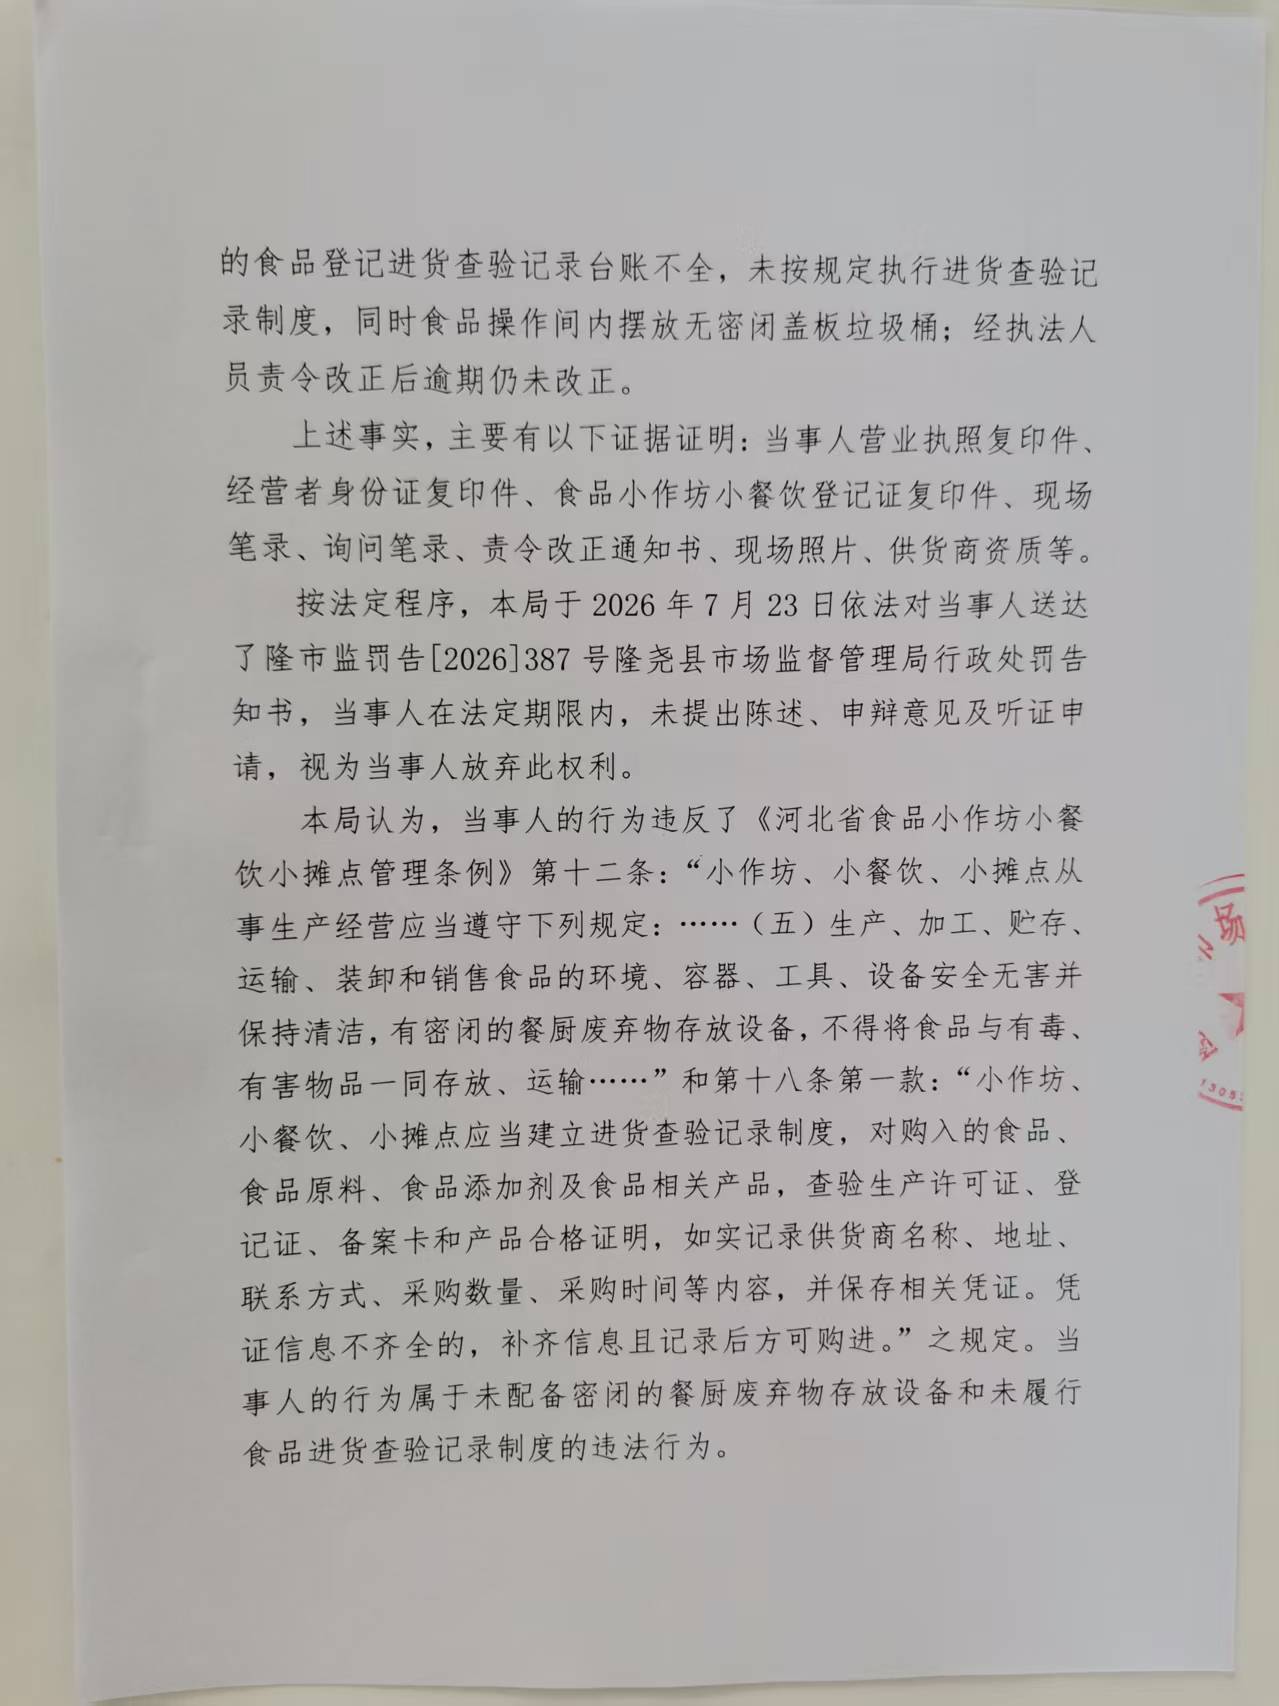 的食品登记进货查验记录台账不全，未按规定执行进货查验记
录制度，同时食品操作间内摆放无密闭盖板垃圾桶；经执法人
员责令改正后逾期仍未改正。
上述事实，主要有以下证据证明：当事人营业执照复印件、
经营者身份证复印件、食品小作坊小餐饮登记证复印件、现场
笔录、询问笔录、责令改正通知书、现场照片、供货商资质等。
按法定程序，本局于 2026 年 7 月 23 日依法对当事人送达
了隆市监罚告[2026]387 号隆尧县市场监督管理局行政处罚告
知书，当事人在法定期限内，未提出陈述、申辩意见及听证申
请，视为当事人放弃此权利。
本局认为，当事人的行为违反了《河北省食品小作坊小餐
饮小摊点管理条例》第十二条：“小作坊、小餐饮、小摊点从
事生产经营应当遵守下列规定：……（五）生产、加工、贮存、
运输、装卸和销售食品的环境、容器、工具、设备安全无害并
保持清洁，有密闭的餐厨废弃物存放设备，不得将食品与有毒、
有害物品一同存放、运输……”和第十八条第一款：“小作坊、
小餐饮、小摊点应当建立进货查验记录制度，对购入的食品、
食品原料、食品添加剂及食品相关产品，查验生产许可证、登
记证、备案卡和产品合格证明，如实记录供货商名称、地址、
联系方式、采购数量、采购时间等内容，并保存相关凭证。凭
证信息不齐全的，补齐信息且记录后方可购进。”之规定。当
事人的行为属于未配备密闭的餐厨废弃物存放设备和未履行
食品进货查验记录制度的违法行为。
场
1305